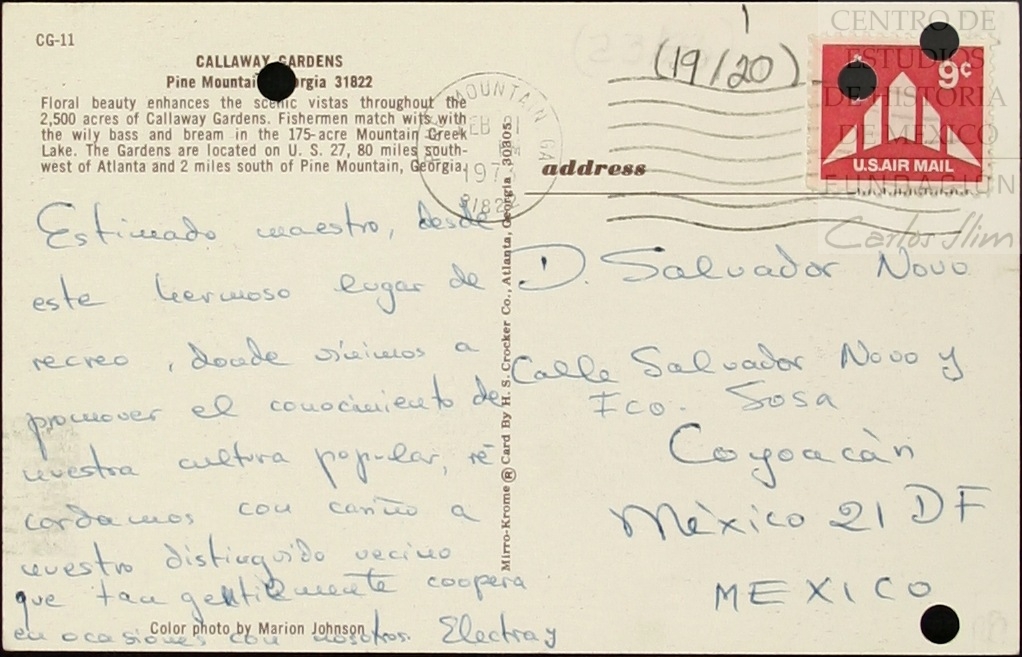 CG-11
CALLAWAY GARDENS
Pine Mountain, Georgia 31822
Floral beauty enhances the scenic vistas throughout the
2,500 acres of Callaway Gardens. Fishermen match wits with
the wily bass and bream in the 175-acre Mountain Creek
Lake. The Gardens are located on U. S. 27, 80 miles south-
west of Atlanta and 2 miles south of Pine Mountain, Georgia.
Estimado maestro, desde
este hermoso lugar de
recreo, donde vinimos a
promover el conocimiento de
nuestra cultura popular, re
cordamos con cariño a
nuestro distinguido vecino
que tan gentilmente coopera
en ocasiones con nosotros. Electra y
Color photo by Marion Johnson
Mirro-Krome ® Card By H. S. Crocker Co., Atlanta, Georgia 30305
MOUNTAIN GA
197
31822
(19/20)
9¢
U.S. AIR MAIL
address
D. Salvador Novo
Calle Salvador Novo y
Fco. Sosa
Coyoacàn
Mèxico 21 DF
MEXICO
CENTRO DE
ESTUDIOS
DE HISTORIA
DE MÉXICO
FUNDACIÓN
Carlos Slim